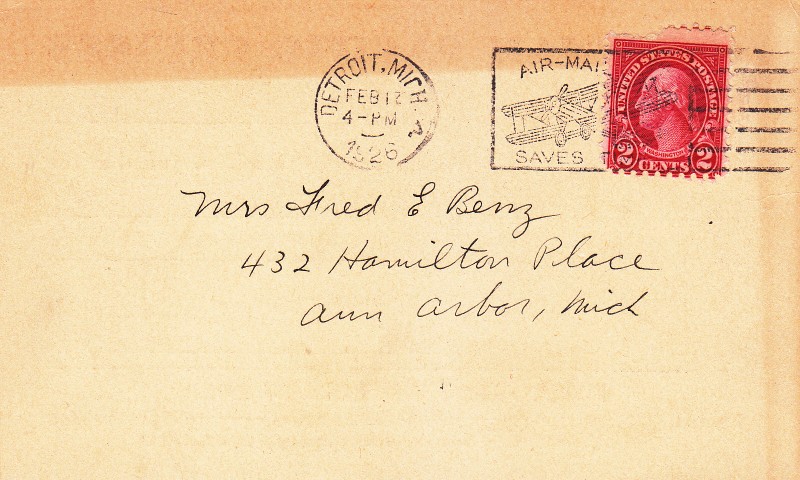 DETROIT, MICH.
FEB 12
4-PM
1926
AIR-MAIL
SAVES
UNITED STATES POSTAGE
WASHINGTON
2 CENTS 2
Mrs Fred E Benz
432 Hamilton Place
Ann Arbor, Mich